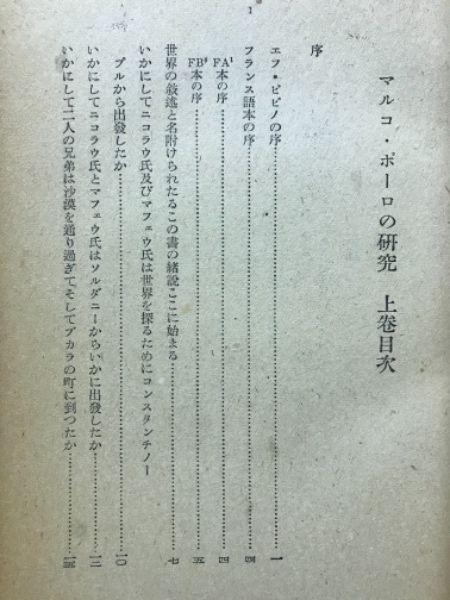 1
マルコ・ポーロの研究 上卷目次
序
エフ・ピピノの序……一
フランス語本の序……四
FA¹本の序……四
FB⁴本の序……五
世界の敍述と名附けられたるこの書の緖說ここに始まる……七
いかにしてニコラウ氏及びマフェウ氏は世界を探るためにコンスタンチノー
プルから出發したか……一〇
いかにしてニコラウ氏とマフェウ氏はソルダニーからいかに出發したか……一二
いかにして二人の兄弟は沙漠を通り過ぎてそしてブカラの町に到つたか……